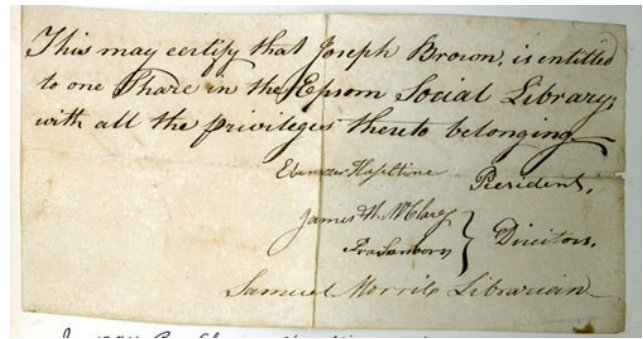 This may certify that Joseph Brown, is entitled
to one Share in the Epsom Social Library,
with all the privileges thereto belonging
Ebenezer Haseltine President,
James H. McClary
Ira Sanborn
Directors.
Samuel Morril Librarian